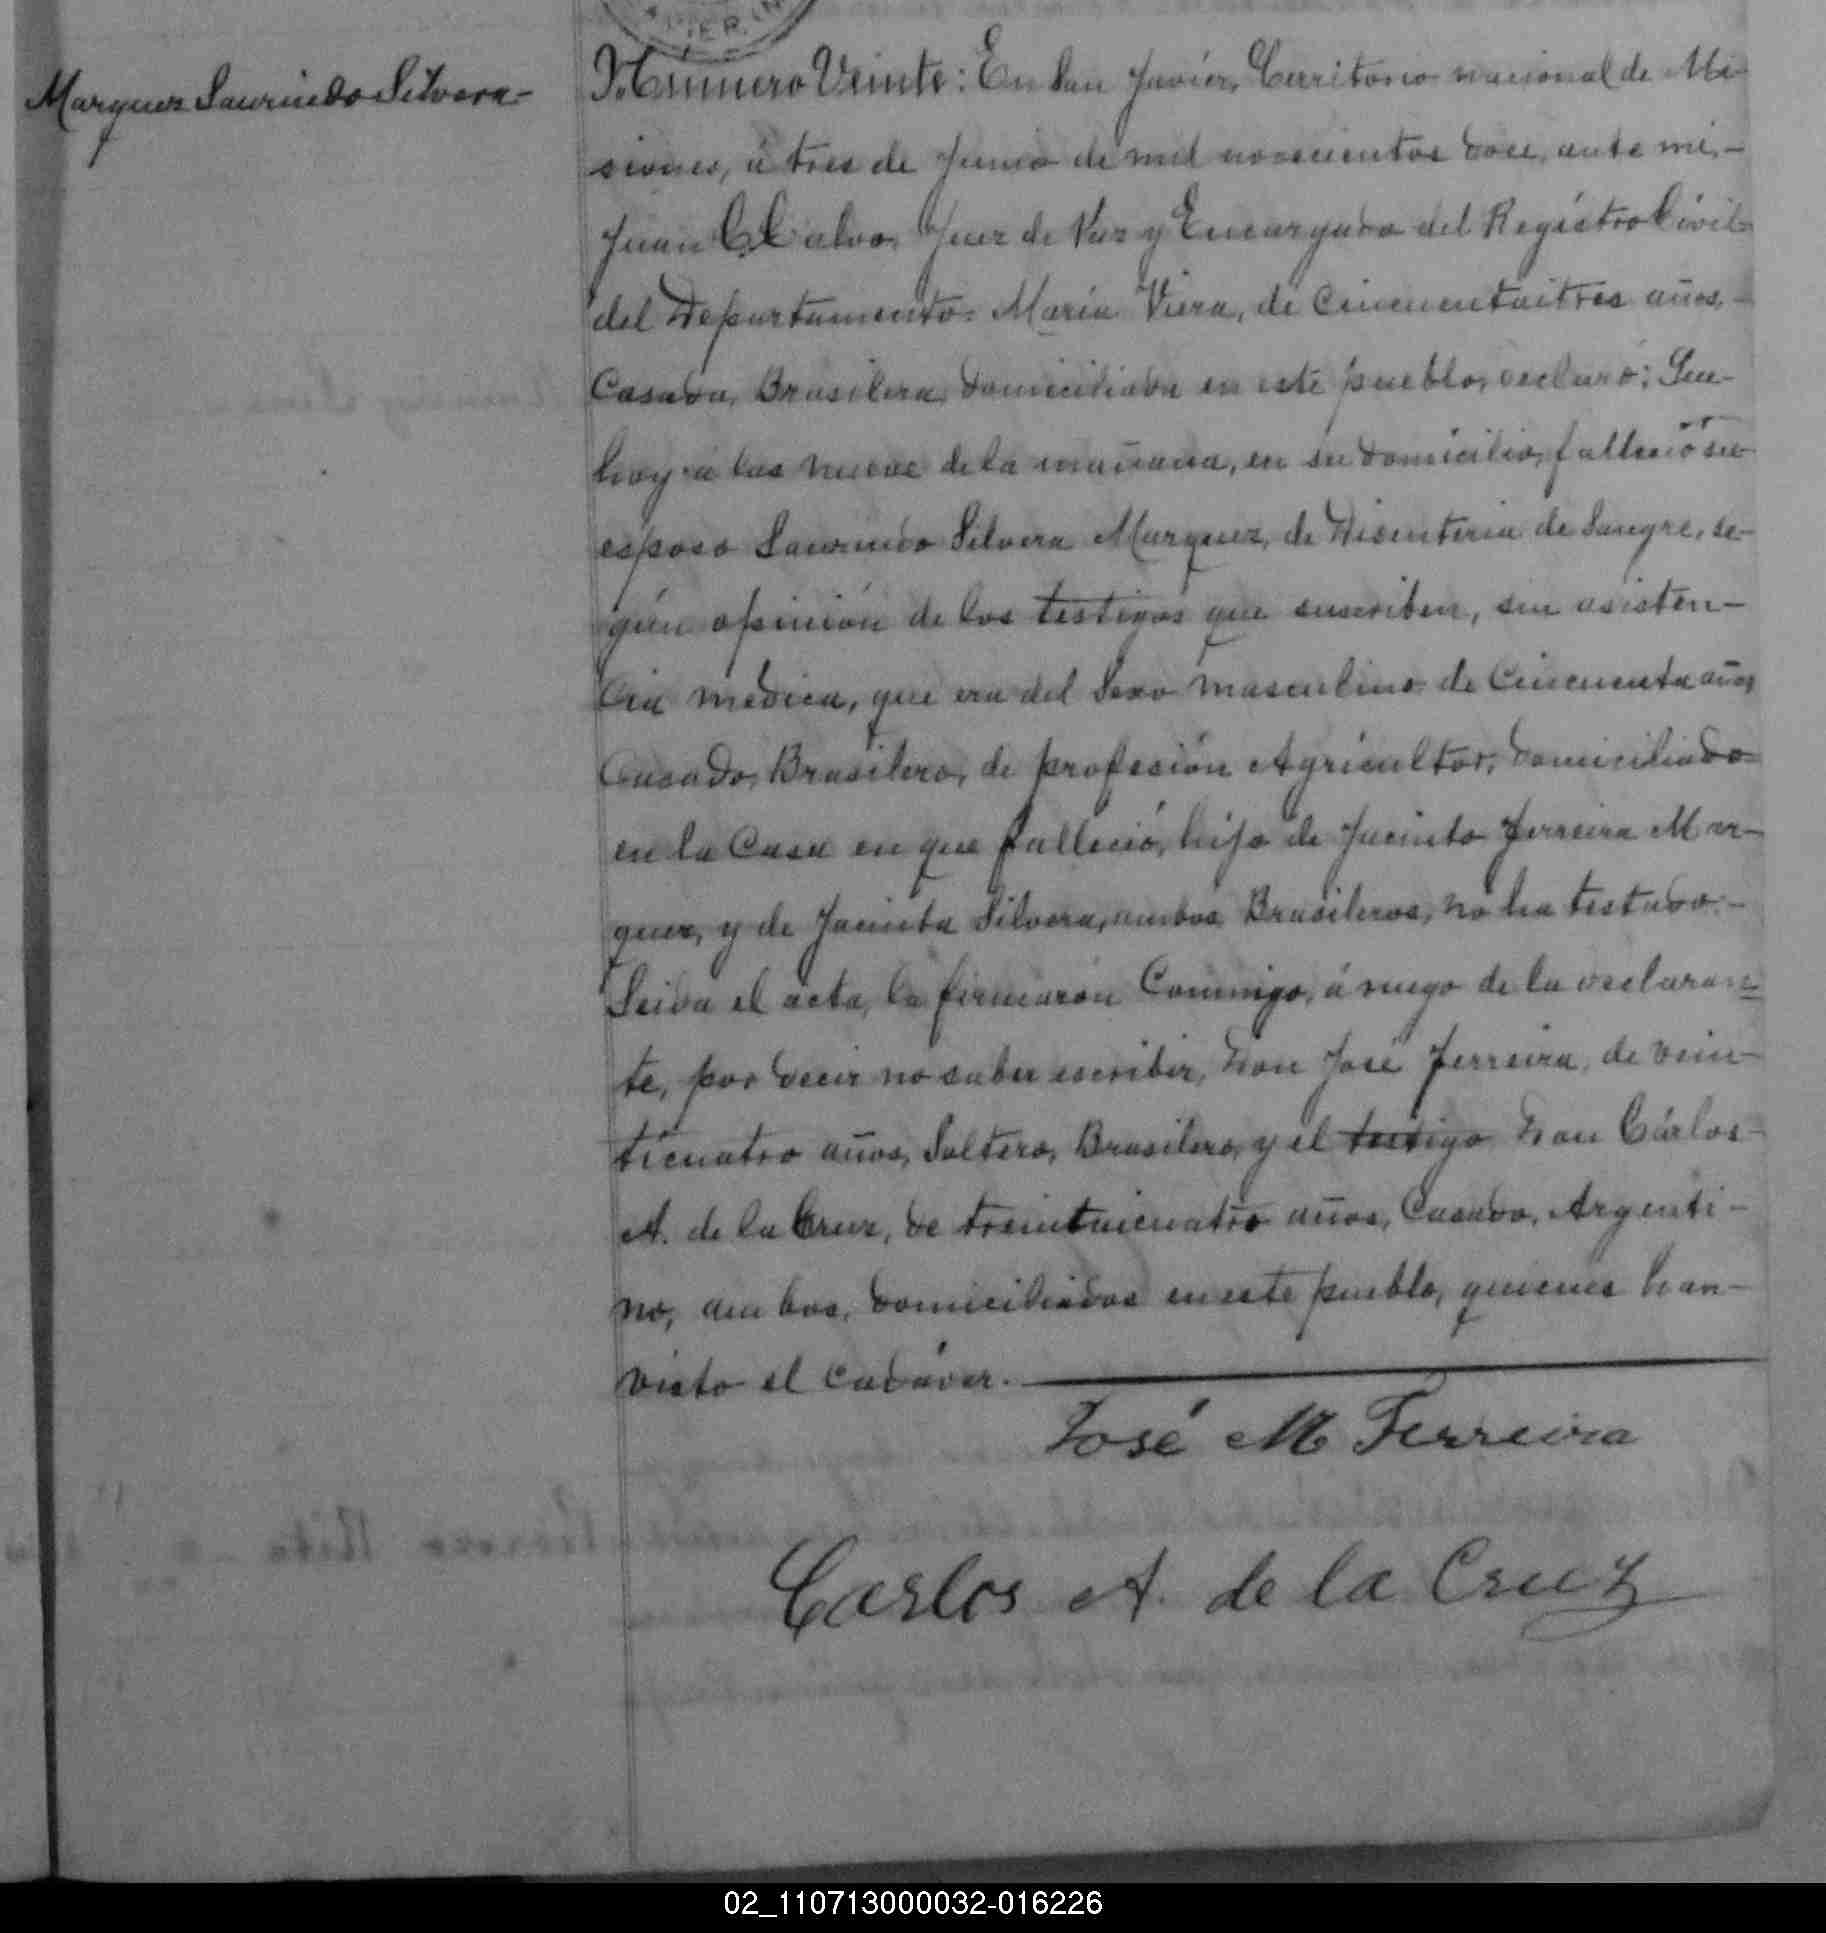 Marquez Laurindo Silvera-
Número Veinte: En San Javier, Territorio nacional de Mi-
siones, á tres de Junio de mil novecientos doce, ante mi,-
Juan C. Calvo, Juez de Paz y Encargado del Registro Civil
del Departamento= María Viera, de Cincuentaitres años,-
Casada, Brasilera, domiciliada en este pueblo, declaró: Que-
hoy á las nueve de la mañana, en su domicilio, falleció su
esposo Laurindo Silvera Marquez, de Disenteria de Sangre, se-
gún opinión de los testigos que suscriben, sin asisten-
cia médica, que era del Sexo masculino de Cincuenta años
Casado, Brasilero, de profesión Agricultor, domiciliado
en la Casa en que falleció, hijo de Jacinto Ferreira Mar-
quez, y de Jacinta Silvera, ambos Brasileros, no ha testado.-
Leida el acta, la firmaron Conmigo, á ruego de la declaran=
te, por decir no saber escribir, Don José Ferreira, de vein-
ticuatro años, Soltero, Brasilero, y el testigo Don Cárlos-
A. de la Cruz, de treintaicuatro años, Casado, Argenti-
no, ambos, domiciliados en este pueblo, quienes han-
visto el cadáver.-
José M Ferreira
Carlos A. de la Cruz
02_110713000032-016226